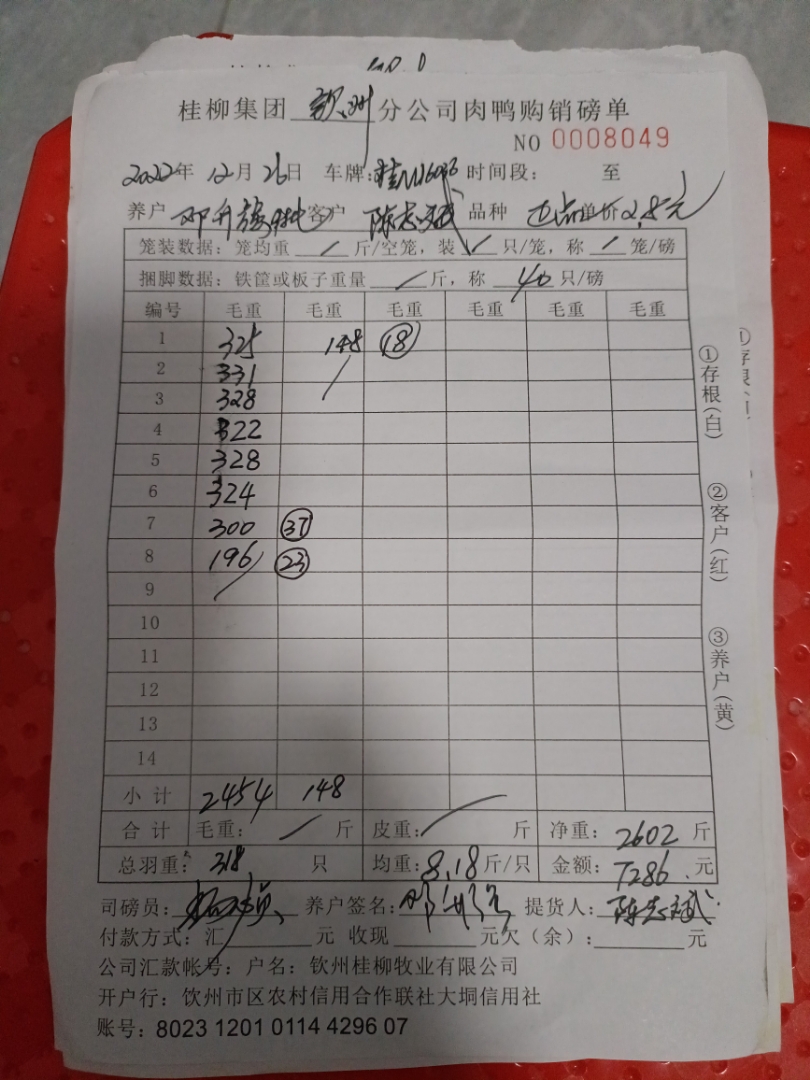 桂柳集团 钦州 分公司肉鸭购销磅单
NO 0008049
2022年 12月 26日 车牌: 时间段: 至
养户 客户 陈志斌 品种 单价2.8元
笼装数据:笼均重 / 斤/空笼,装 / 只/笼,称 / 笼/磅
捆脚数据:铁筐或板子重量 / 斤,称 40 只/磅
编号 毛重 毛重 毛重 毛重 毛重 毛重
1 325 148 ⑱
2 331 /
3 328
4 322
5 328
6 324
7 300 ㊲
8 196 ㉓
9 /
10
11
12
13
14
小计 2454 148
合计 毛重: / 斤 皮重: / 斤 净重: 2602 斤
总羽重: 318 只 均重: 8.18 斤/只 金额: 7286 元
司磅员: 养户签名: 提货人: 陈志斌
付款方式:汇 元 收现 元欠(余): 元
公司汇款帐号:户名:钦州桂柳牧业有限公司
开户行:钦州市区农村信用合作联社大垌信用社
账号:8023 1201 0114 4296 07
①存根(白)
②客户(红)
③养户(黄)